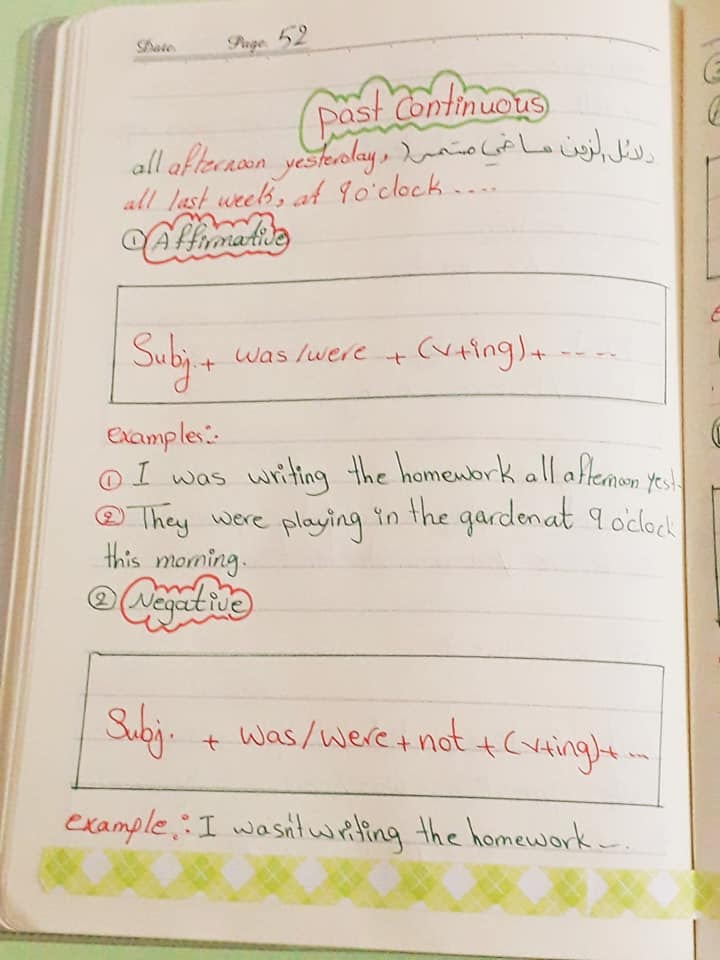 Date. Page. 52
past continuous
all afternoon yesterday, (دلائل الزمن ماضي مستمر
all last week, at 9 o'clock ....
① Affirmative
Subj. + was/were + (v+ing) + ----
examples:-
① I was writing the homework all afternoon yest.
② They were playing in the garden at 9 o'clock
this morning.
② Negative
Subj. + was/were + not + (v+ing) + ...
example: I wasn't writing the homework -.